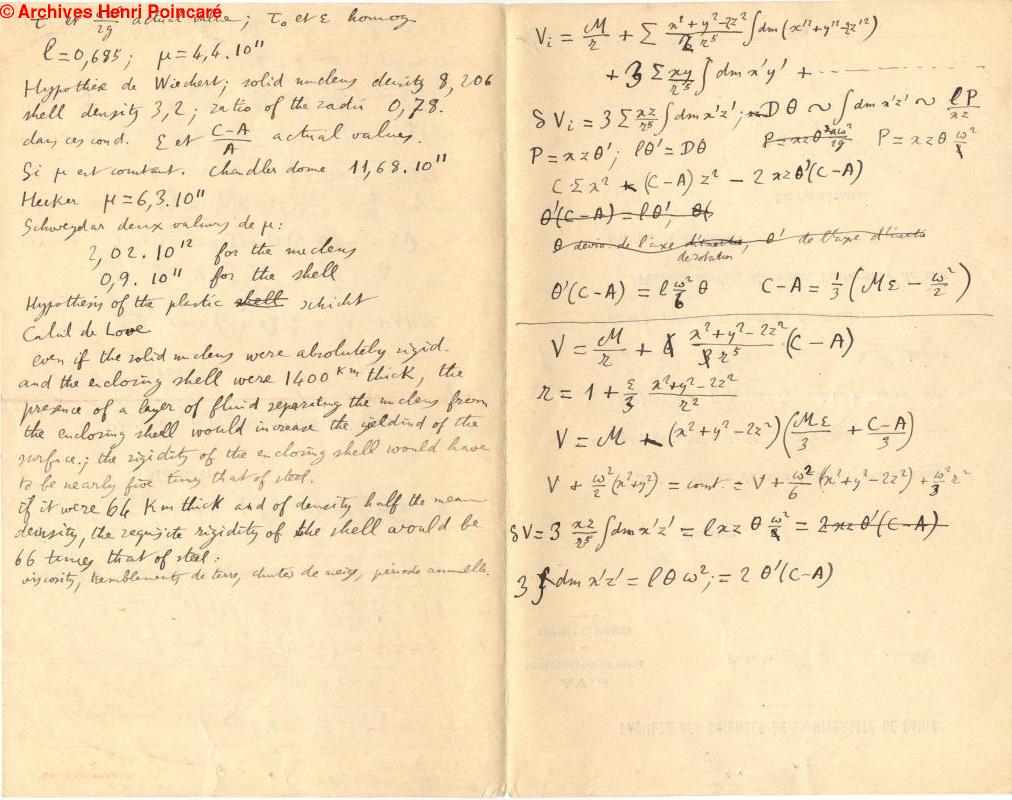 © Archives Henri Poincaré
τ et ω²/2g actual value ; τ₀ et ε homog
l = 0,685 ; μ = 4,4. 10¹¹
Hypothèse de Wiechert ; solid nucleus density 8,206
shell density 3,2 ; ratio of the radii 0,78.
dans ces cond. ε et C-A/A actual values.
Si μ est constant. Chandler donne 11,68. 10¹¹
Hecker μ = 6,3. 10¹¹
Schweydar deux valeurs de μ :
2,02. 10¹² for the nucleus
0,9. 10¹¹ for the shell
Hypothesis of the plastic shell schicht
Calcul de Love
even if the solid nucleus were absolutely rigid.
and the enclosing shell were 1400 Km thick, the
presence of a layer of fluid separating the nucleus from
the enclosing shell would increase the yieldind of the
surface. ; the rigidity of the enclosing shell would have
to be nearly five times that of steel.
if it were 64 Km thick and of density half the mean
density, the requisite rigidity of the shell would be
66 times that of steel.
viscosity, tremblements de terre, chutes de neige, période annuelle.
Vᵢ = M/r + Σ x²+y²-2z²/2r⁵ ∫dm (x'²+y'²-2z'²)
+ 3 Σ xy/r⁵ ∫ dm x'y' + ...
δVᵢ = 3 Σ xz/r⁵ ∫dm x'z' ; Dθ ~ ∫dm x'z' ~ lP/xz
P = xzθ' ; lθ' = Dθ P = xzθ ω²/2g P = xzθ ω²
C Σx² + (C-A) z² - 2xzθ'(C-A)
θ'(C-A) = lθ', θ(
θ devia. de l'axe d'inertie, θ' de l'axe d'inertie
de rotation
θ'(C-A) = l ω²/6 θ C-A = 1/3 (Mε - ω²/2)
V = M/r + x²+y²-2z²/2r⁵ (C-A)
r = 1 + ε/3 x²+y²-2z²/r²
V = M + (x²+y²-2z²)(Mε/3 + C-A/3)
V + ω²/2 (x²+y²) = const. = V + ω²/6 (x²+y²-2z²) + ω²/3 r²
δV = 3 xz/r⁵ ∫dm x'z' = lxz θ ω² = 2xzθ'(C-A)
3 ∫dm x'z' = lθω² ; = 2θ'(C-A)